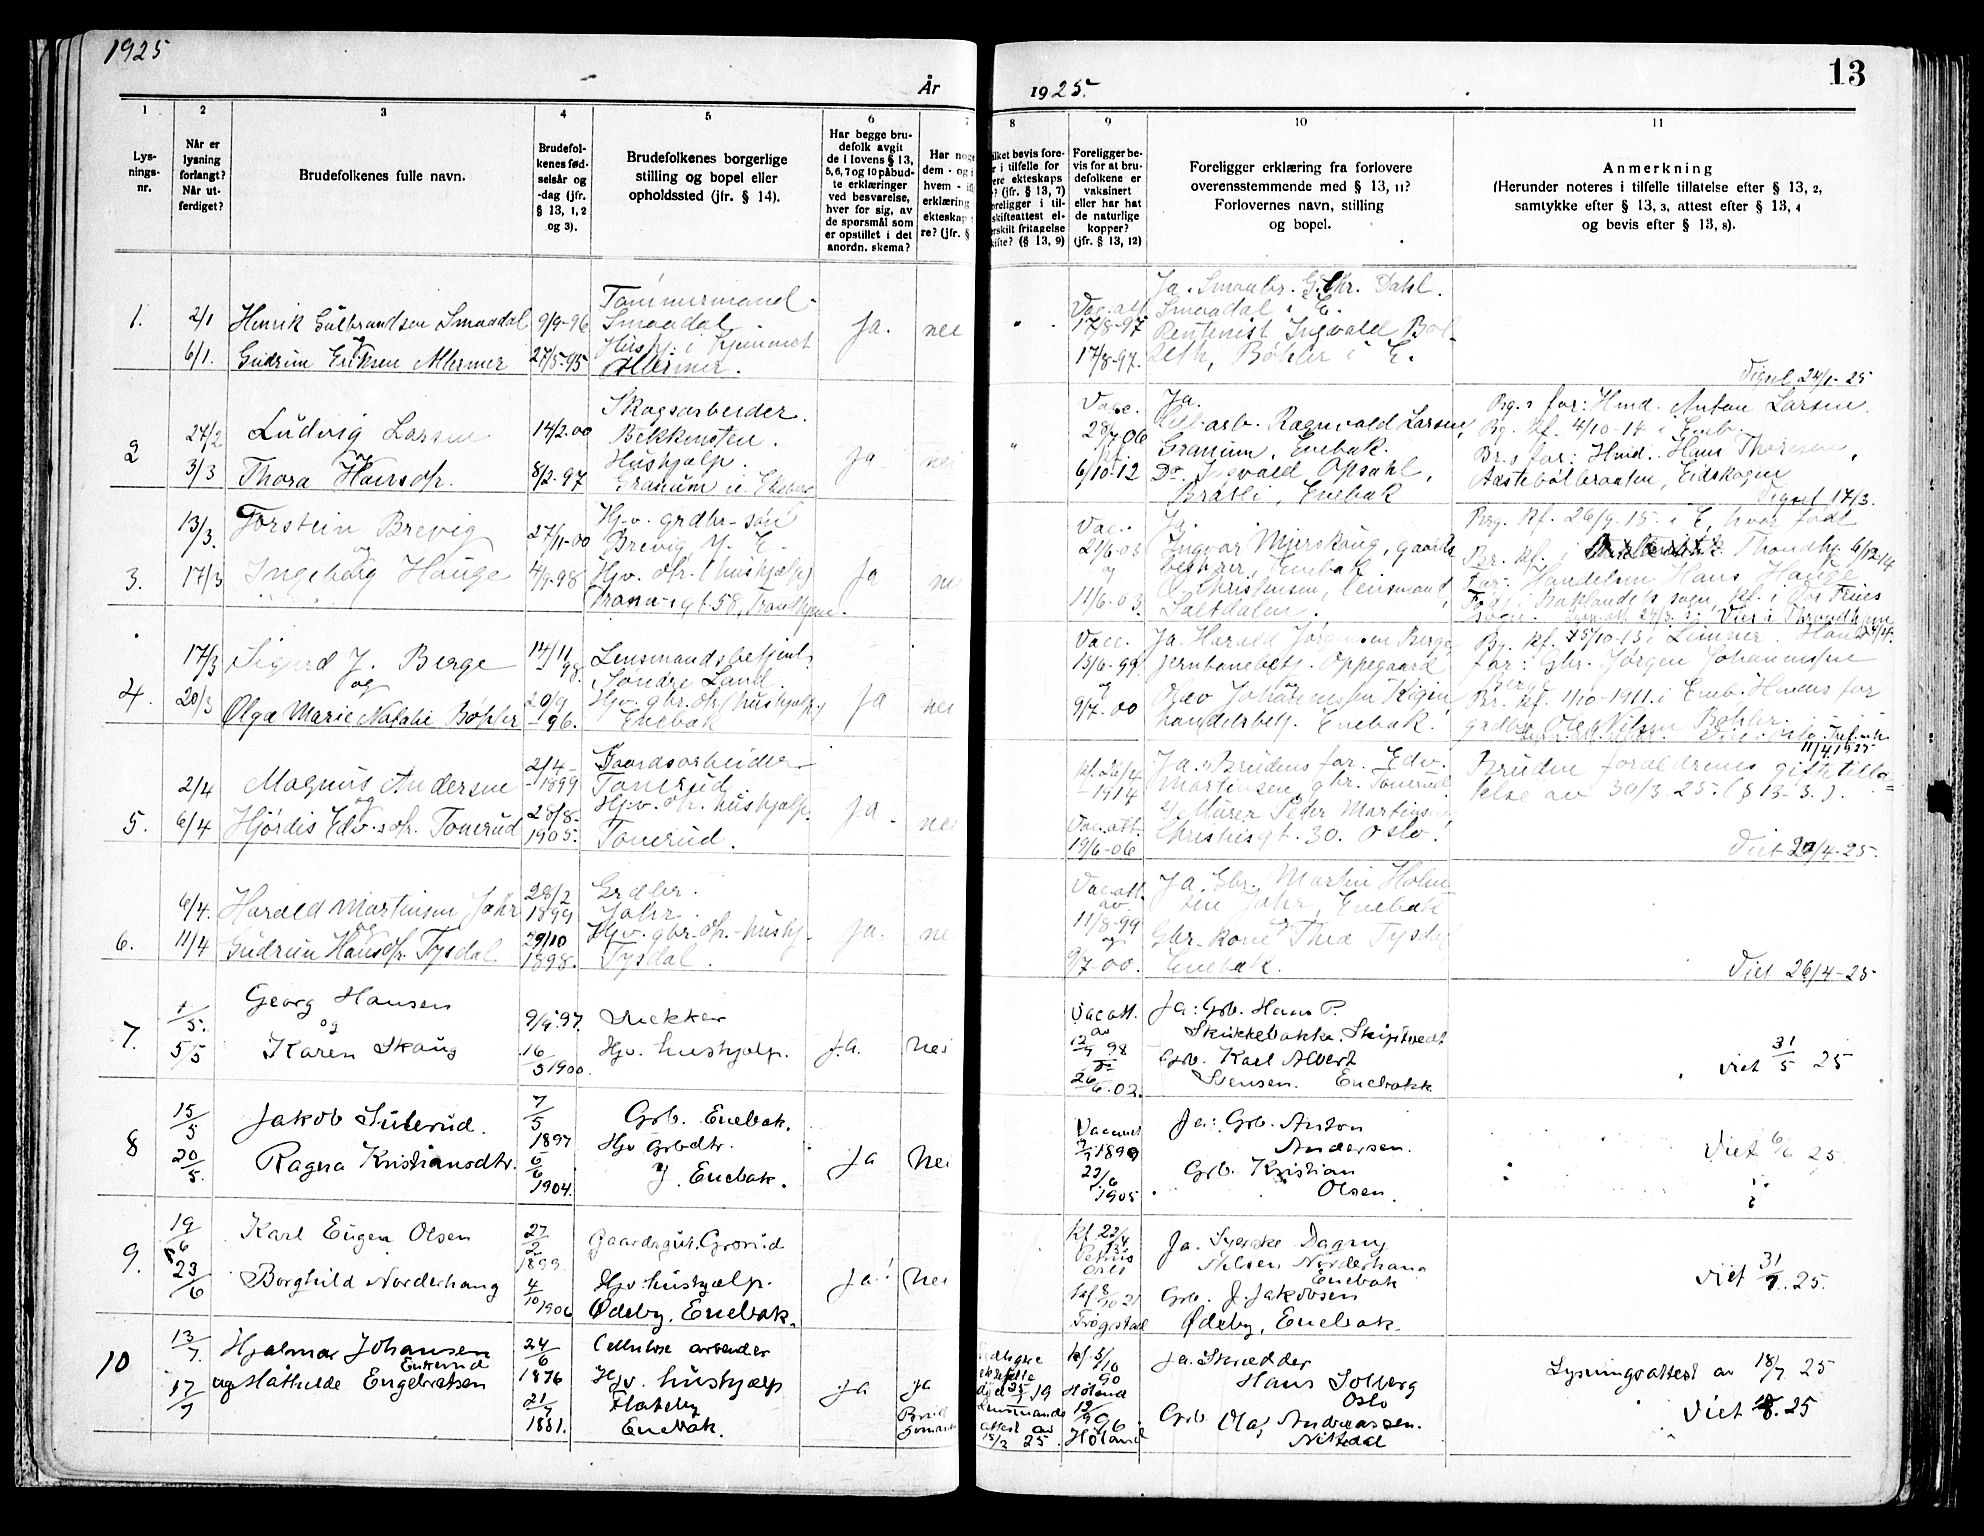 1925
År
1925.
13
1
2
3
4
5
6
7
8
9
10
11
Lys-
nings-
nr.
Når er
lysning
forlangt?
Når ut-
ferdiget?
Brudefolkenes fulle navn.
Brudefol-
kenes fød-
selsår og
-dag (jfr.
§ 13, 1, 2
og 3).
Brudefolkenes borgerlige
stilling og bopel eller
opholdssted (jfr. § 14).
Har begge bru-
defolk avgit
de i lovens § 13,
5, 6, 7 og 10 påbud-
te erklæringer
ved besvarelse,
hver for sig, av
de spørsmål som
er opstillet i det
anordn. skema?
Har noge
dem - og i
hvem - i
erklæring
ekteskap
re? (jfr. §
ilket bevis fore-
r i tilfelle for
ere ekteskaps
? (jfr. § 13, 7)
oreligger i til-
skifteattest el-
rskilt fritagelse
kifte? (§ 13, 9)
Foreligger be-
vis for at bru-
defolkene er
vaksinert
eller har hat
de naturlige
kopper?
(jfr. § 13, 12)
Foreligger erklæring fra forlovere
overensstemmende med § 13, 11?
Forlovernes navn, stilling
og bopel.
Anmerkning
(Herunder noteres i tilfelle tillatelse efter § 13, 2,
samtykke efter § 13, 3, attest efter § 13, 4
og bevis efter § 13, 8).
1.
2/1
6/1.
Henrik Gulbrandsen Smaadal
og
Gudrun Eriksen Mermer
9/9-96
27/5-95
Tømmermand
Smaadal.
Hushj. i hjemmet
Mermer.
Ja.
nei
Vac. att.
17/8-97
17/8-97.
Ja. Smaabr. G. Chr. Dahl.
Smaadal i E.
Rentenist Ingvald Bøh-
leth, Bøhler i E.
Vigsel 24/1-25
2
24/2
3/3
Ludvig Larsen
og
Thora Hansdtr.
14/2.00
8/2.97
Skogsarbeider.
Bekkensten.
Hushjælp.
Granum i Enebak
Ja
nei
Vacc.
28/7 06
kf.
6/10-12
Ja.
Cell. arb. Ragnvald Larsen,
Granum, Enebak.
Do. Ingvald Opsahl,
Bråtli, Enebak
Brg.s far: Hmd. Anton Larsen.
Bg. kf. 4/10-14 i Eneb.
Br.s far: Hmd. Hans Thoresen,
Aastebølbraaten, Eidskogen
Vigsel 17/3.
3.
13/3.
17/3
Torstein Brevig
og
Ingeborg Hauge
27/11-00
4/9-98
Hjv. grdbr-søn
Brevig Y. E.
Hjv. dtr. (hushjælp)
Trana-sgt. 58, Trondhjem.
Ja
nei
Vac.
21/6-03
og
11/6-03.
Ja.
Ingvar Mjerskaug, gaard-
besitter, Enebak
O. Christensen, lensmand,
Saltdalen.
Brg. kf. 26/9-15. i E, hvor født
Br. kf. i Trondhj. 6/12 14
Far: Handelsm Hans Hauge
Født i Baklandets sogn, kf. i Vor Frues
sogn. Viet i Throndhjem
4.
17/3
20/3
Sigurd J. Berge
og
Olga Marie Natalie Bøhler
14/11
98.
20/9
-96.
Lensmandsbetjent,
Søndre Land
Hjv. gbr. dtr. (hushjælp)
Enebak
Ja
nei
Vacc.
15/6-99
og
9/7.00
Ja. Harald Jørgensen Berge
jernbanebetj. Oppegaard
Olav Johannessen Kigin
handelsbetj. Enebak.
Bg. kf. 5/10-13 i Lunner. Hans
far: Gbr. Jørgen Johannessen
Berge
Br. kf. 1/10-1911. i Eneb. Hendes far
grdbr. Ole Nilsen Bøhler.
11/4 1925
5.
2/4
6/4
Magnus Andersen
og
Hjørdis Edv.s dtr. Tonerud
2/4-
1899
28/8-
1905.
Gaardsarbeider
Tonerud.
Hjv. dtr. hushjælp.
Tonerud.
Ja.
nei
kf. 26/4
-1914
Vac. att.
19/6-06
Ja. Brudens far. Edv.
Martinsen, gbr. Tonerud
2/ Murer Peder Martinsen
Christiesgt. 30. Oslo.
Brudens forældrenes giftetilla-
telse av 30/3. 25. (§ 13-3.).
Viet 20/4-25.
6.
6/4.
11/4
Harald Martinsen Jahr
og
Gudrun Hansdtr. Tysdal
28/2
1899
29/10
1898.
Grdbr.
Jahr.
Hjv. gbr. dtr. - hushj.
Tysdal.
Ja.
nei
Vac. att.
av
11/8-99
og
9/7-00.
Ja. Gbr. Martin Holm-
sen Jahr, Enebak
og
Gbr. kone Thea Tysdal
Enebak.
Viet 26/4-25
7.
1/5.
5/5
Georg Hansen
og
Karen Skaug
9/9.97.
16/3 1900.
Snekker
Hjv. hushjælp.
Ja.
nei
Vac att.
av
12/7 98
26/6.02
Ja: Grb. Hans P.
Skukkebakke. Skiptvedt
Grb. Karl Albert
Svensen. Enebakk
viet 31/5 25
8
15/5
20/5.
Jakob Sulerud.
Ragna Kristiansdtr.
7/5
1897
6/6
1904.
Grb. Enebak.
Hjv Grbdtr.
Y. Enebak.
Ja
Nei
Vaccinert
1899
22/6
1905
Ja: Grb. Anton
Andersen.
Grb. Kristian
Olsen.
Viet 6/6 25.
9.
19/6
23/6
Karl Eugen Olsen
Borghild Norderhaug
27/2
1899
4/10 1906
Gaardsgut. Grorud
Hjv. hushjælp.
Ødeby, Enebak.
Ja
Nei
kf. 22/4
Petrus
Oslo
kf. 8/10 21
Trøgstad
Ja. Syerske Dagny
Nilsen Norderhaug
Enebak
Grb. J. Jakobsen
Ødeby, Enebak.
Viet 31/7. 25.
10
13/7.
17/7
Hjalmar Johansen
Enkerud
og Mathilde Engebretsen
24/6
1876
21/7
1881.
Cellulose arbeider
Hjv. hushjælp
Flateby
Enebak.
Ja
ja
Brud
gommen
Tidligere
ektefelle
død 25/7 19
Lensmands
attest av
15/7 25.
kf. 5/10
90
Høland
12/9 96.
Høland
Ja. Skrædder
Hans Solberg
Oslo
Grb Olaf Andreassen.
Nittedal
Lysningsattest av 18/7 25
Viet 8. 25